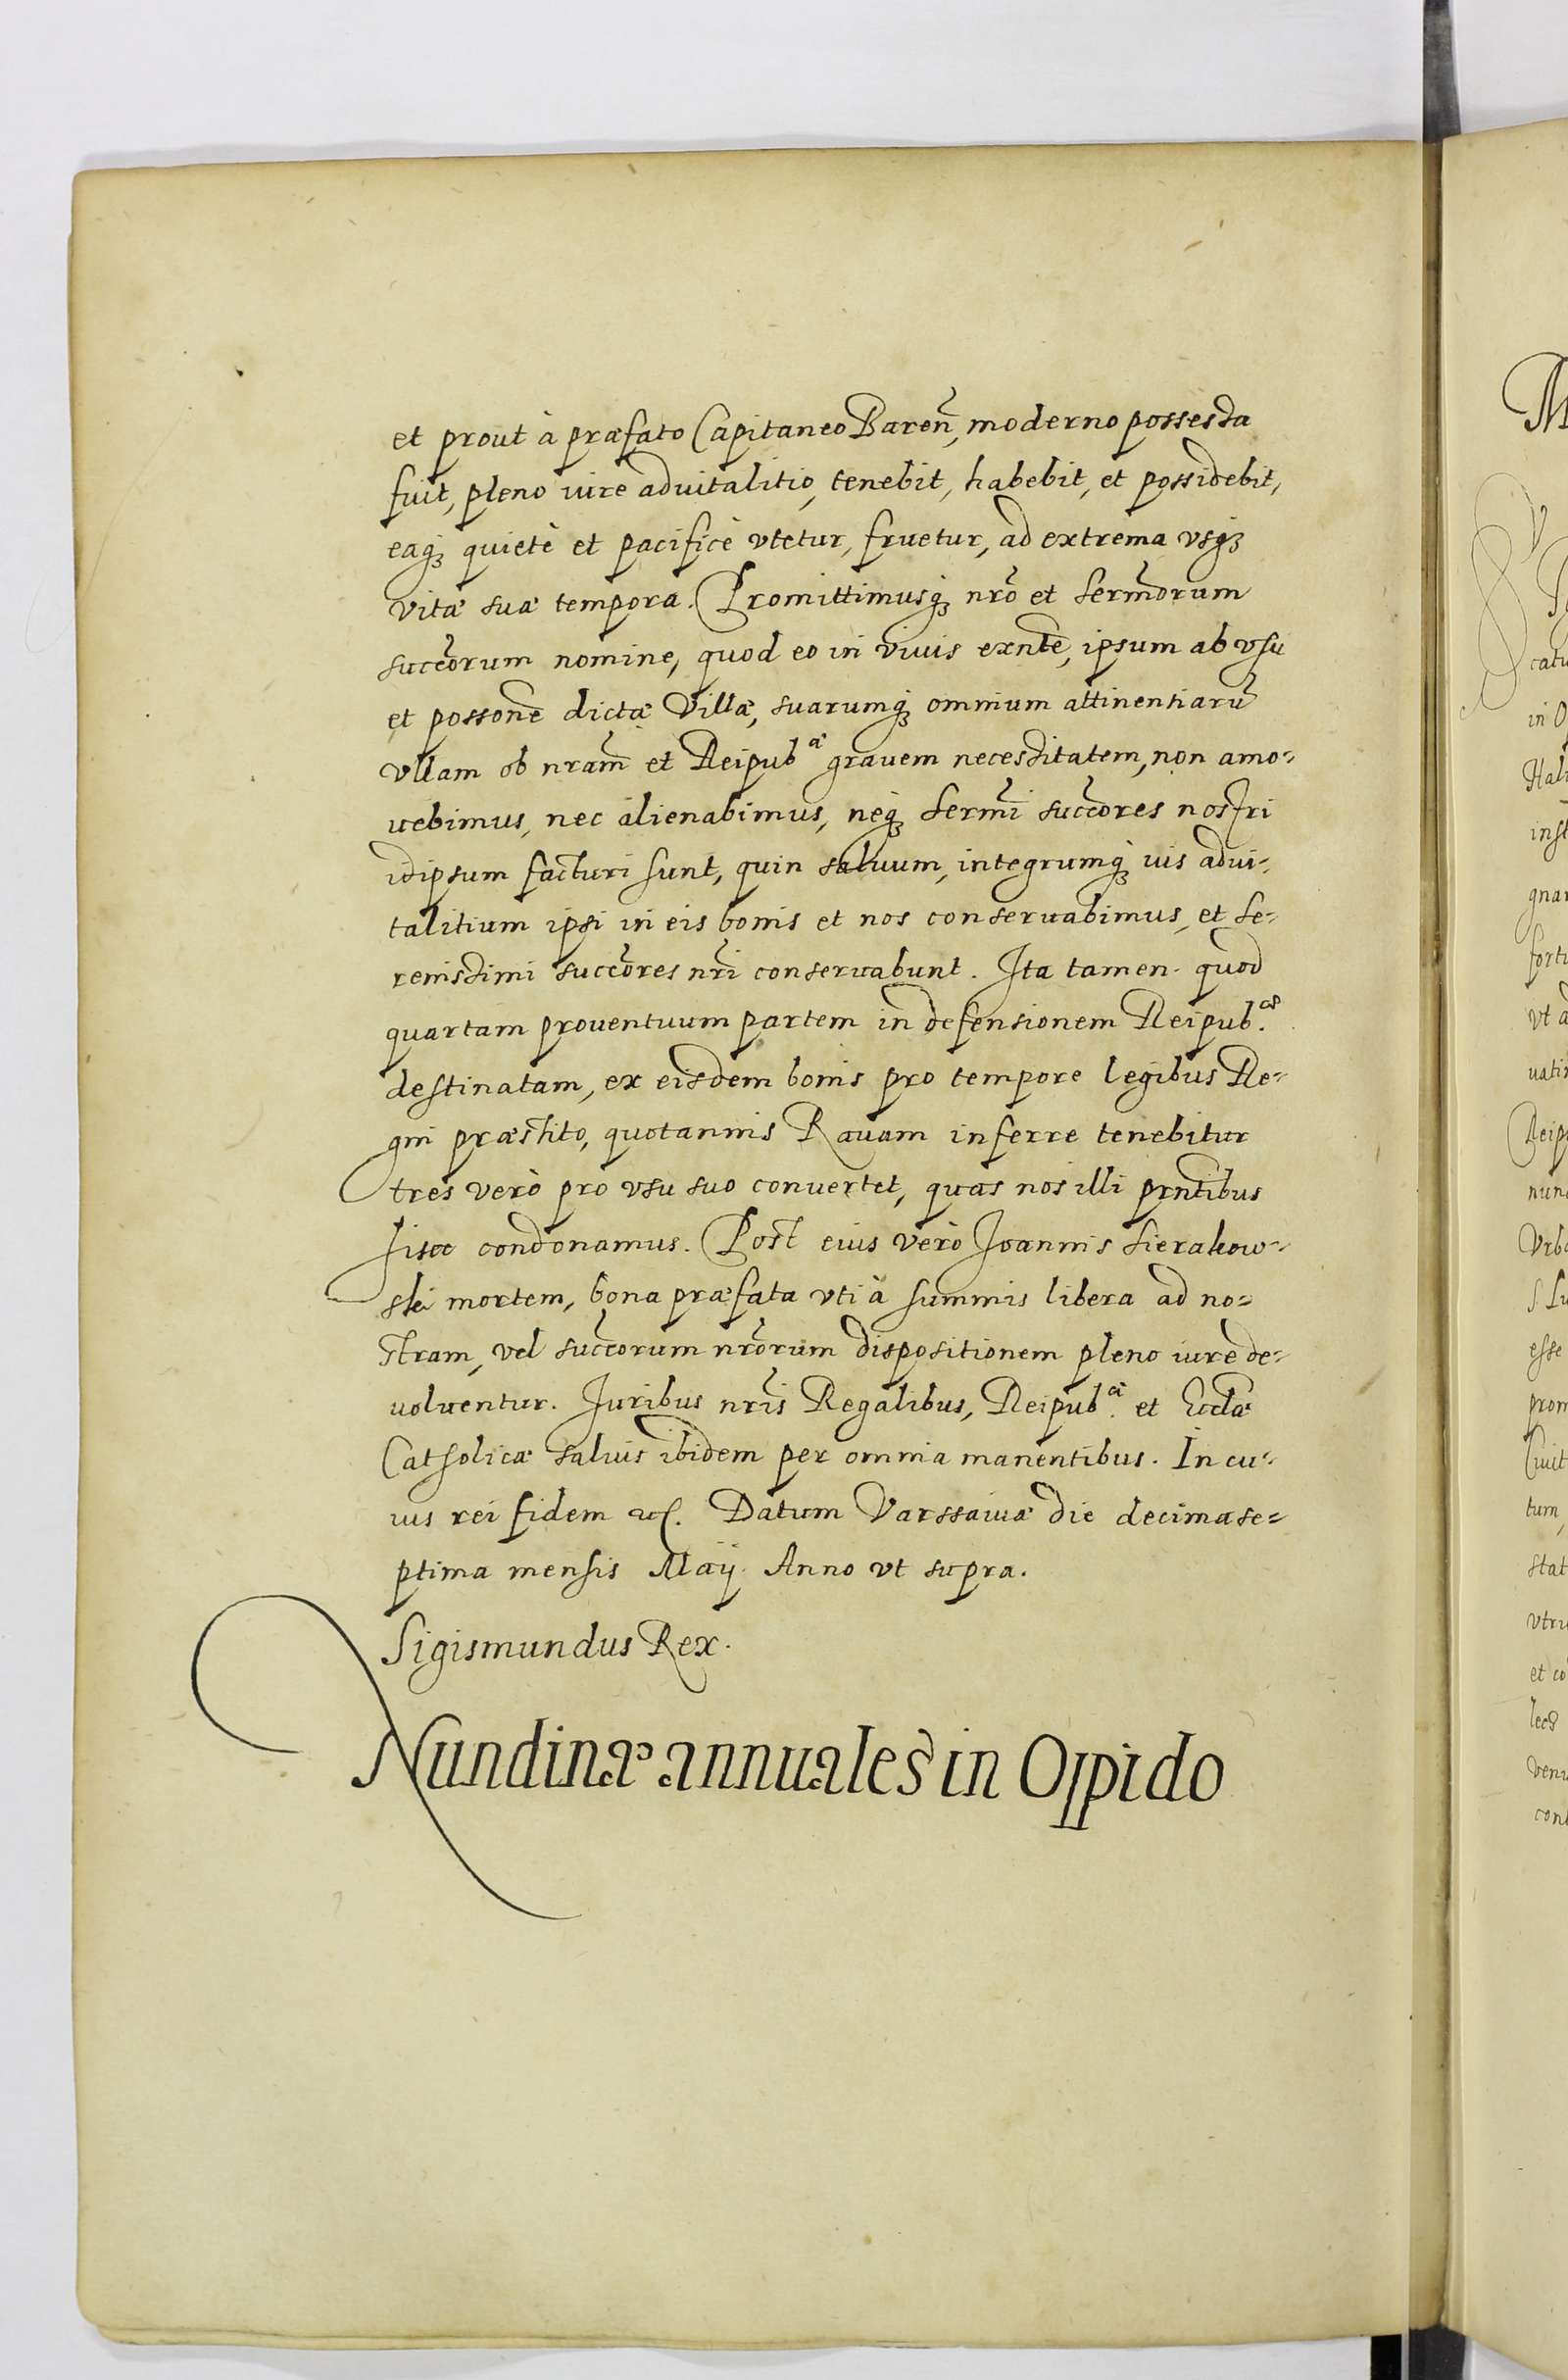 et prout à præfato Capitaneo Bareñ, moderno possessa
fuit, pleno iure aduitalitio, tenebit, habebit, et possidebit,
eaq3 quietè et pacificè vtetur, fruetur, ad extrema vsq3
vitæ suæ tempora. Promittimusq3 nrõ et Sermorum
succeorum nomine, quod eo in viuis exnte, ipsum ab vsu
et possone dictæ Villæ, suarumq3 omnium attinentiarũ
vllam ob nram et Reipub æ grauem necessitatem, non amo-
uebimus, nec alienabimus, neq3 Sermi succeores nostri
idipsum facturi sunt, quin saluum, integrumq3 ius adui-
talitium ipsi in eis bonis et nos conseruabimus, et Se-
renissimi succeores nri conseruabunt. Ita tamen quod
quartam prouentuum partem in defensionem Reipub. æ
destinatam, ex eisdem bonis pro tempore legibus Re-
gni præstito, quotannis Rauam inferre tenebitur
tres verò pro vsu suo conuertet, quas nos illi prntibus
hisce condonamus. Post eius verò Joannis Sierakow-
ski mortem, bona præfata vti à summis libera ad no-
stram, vel succeorum nrorum dispositionem pleno iure de-
uoluentur. Juribus nris Regalibus, Reipub. æ et Ecclæ
Catholicæ saluis ibidem per omnia manentibus. In cu-
ius rei fidem etc. Datum Varssauiæ die decima se-
ptima mensis Maij Anno vt supra.
Sigismundus Rex.
Nundinæ annuales in Oppido